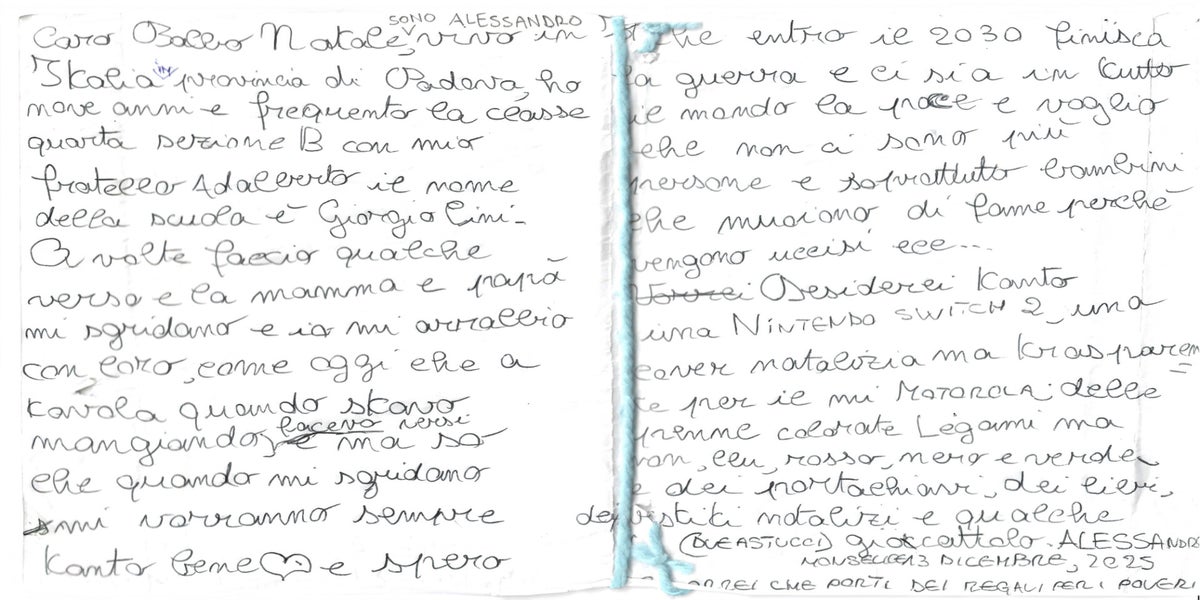 SONO ALESSANDRO
Caro Babbo Natale, vivo in
Italia in provincia di Padova, ho
nove anni e frequento la classe
quarta sezione B con mio
fratello Adalberto il nome
della scuola è Giorgio Cini-
A volte faccio qualche
verso e la mamma e papà
mi sgridano e io mi arrabbio
con loro, come oggi che a
tavola quando stavo
mangiando, facevo versi ma so
che quando mi sgridano
mi vorranno sempre
tanto bene e spero
che entro il 2030 finisca
la guerra e ci sia in tutto
il mondo la pace e voglio
che non ci sono più
persone e soprattuto bambini
che muoiono di fame perchè
vengono uccisi ecc...
Vorrei Desiderei tanto
una NINTENDO SWITCH 2, una
cover natalizia ma trasparen=
te per il mi MOTOROLA; delle
penne colorate Legami ma
non, blu, rosso, nero e verde,
e dei portachiavi, dei libri,
dei vestiti natalizi e qualche
(DUE ASTUCCI) giocattolo. ALESSANDRO
MONSELICE 13 DICEMBRE, 2025
VORREI CHE PORTI DEI REGALI PER I POVERI